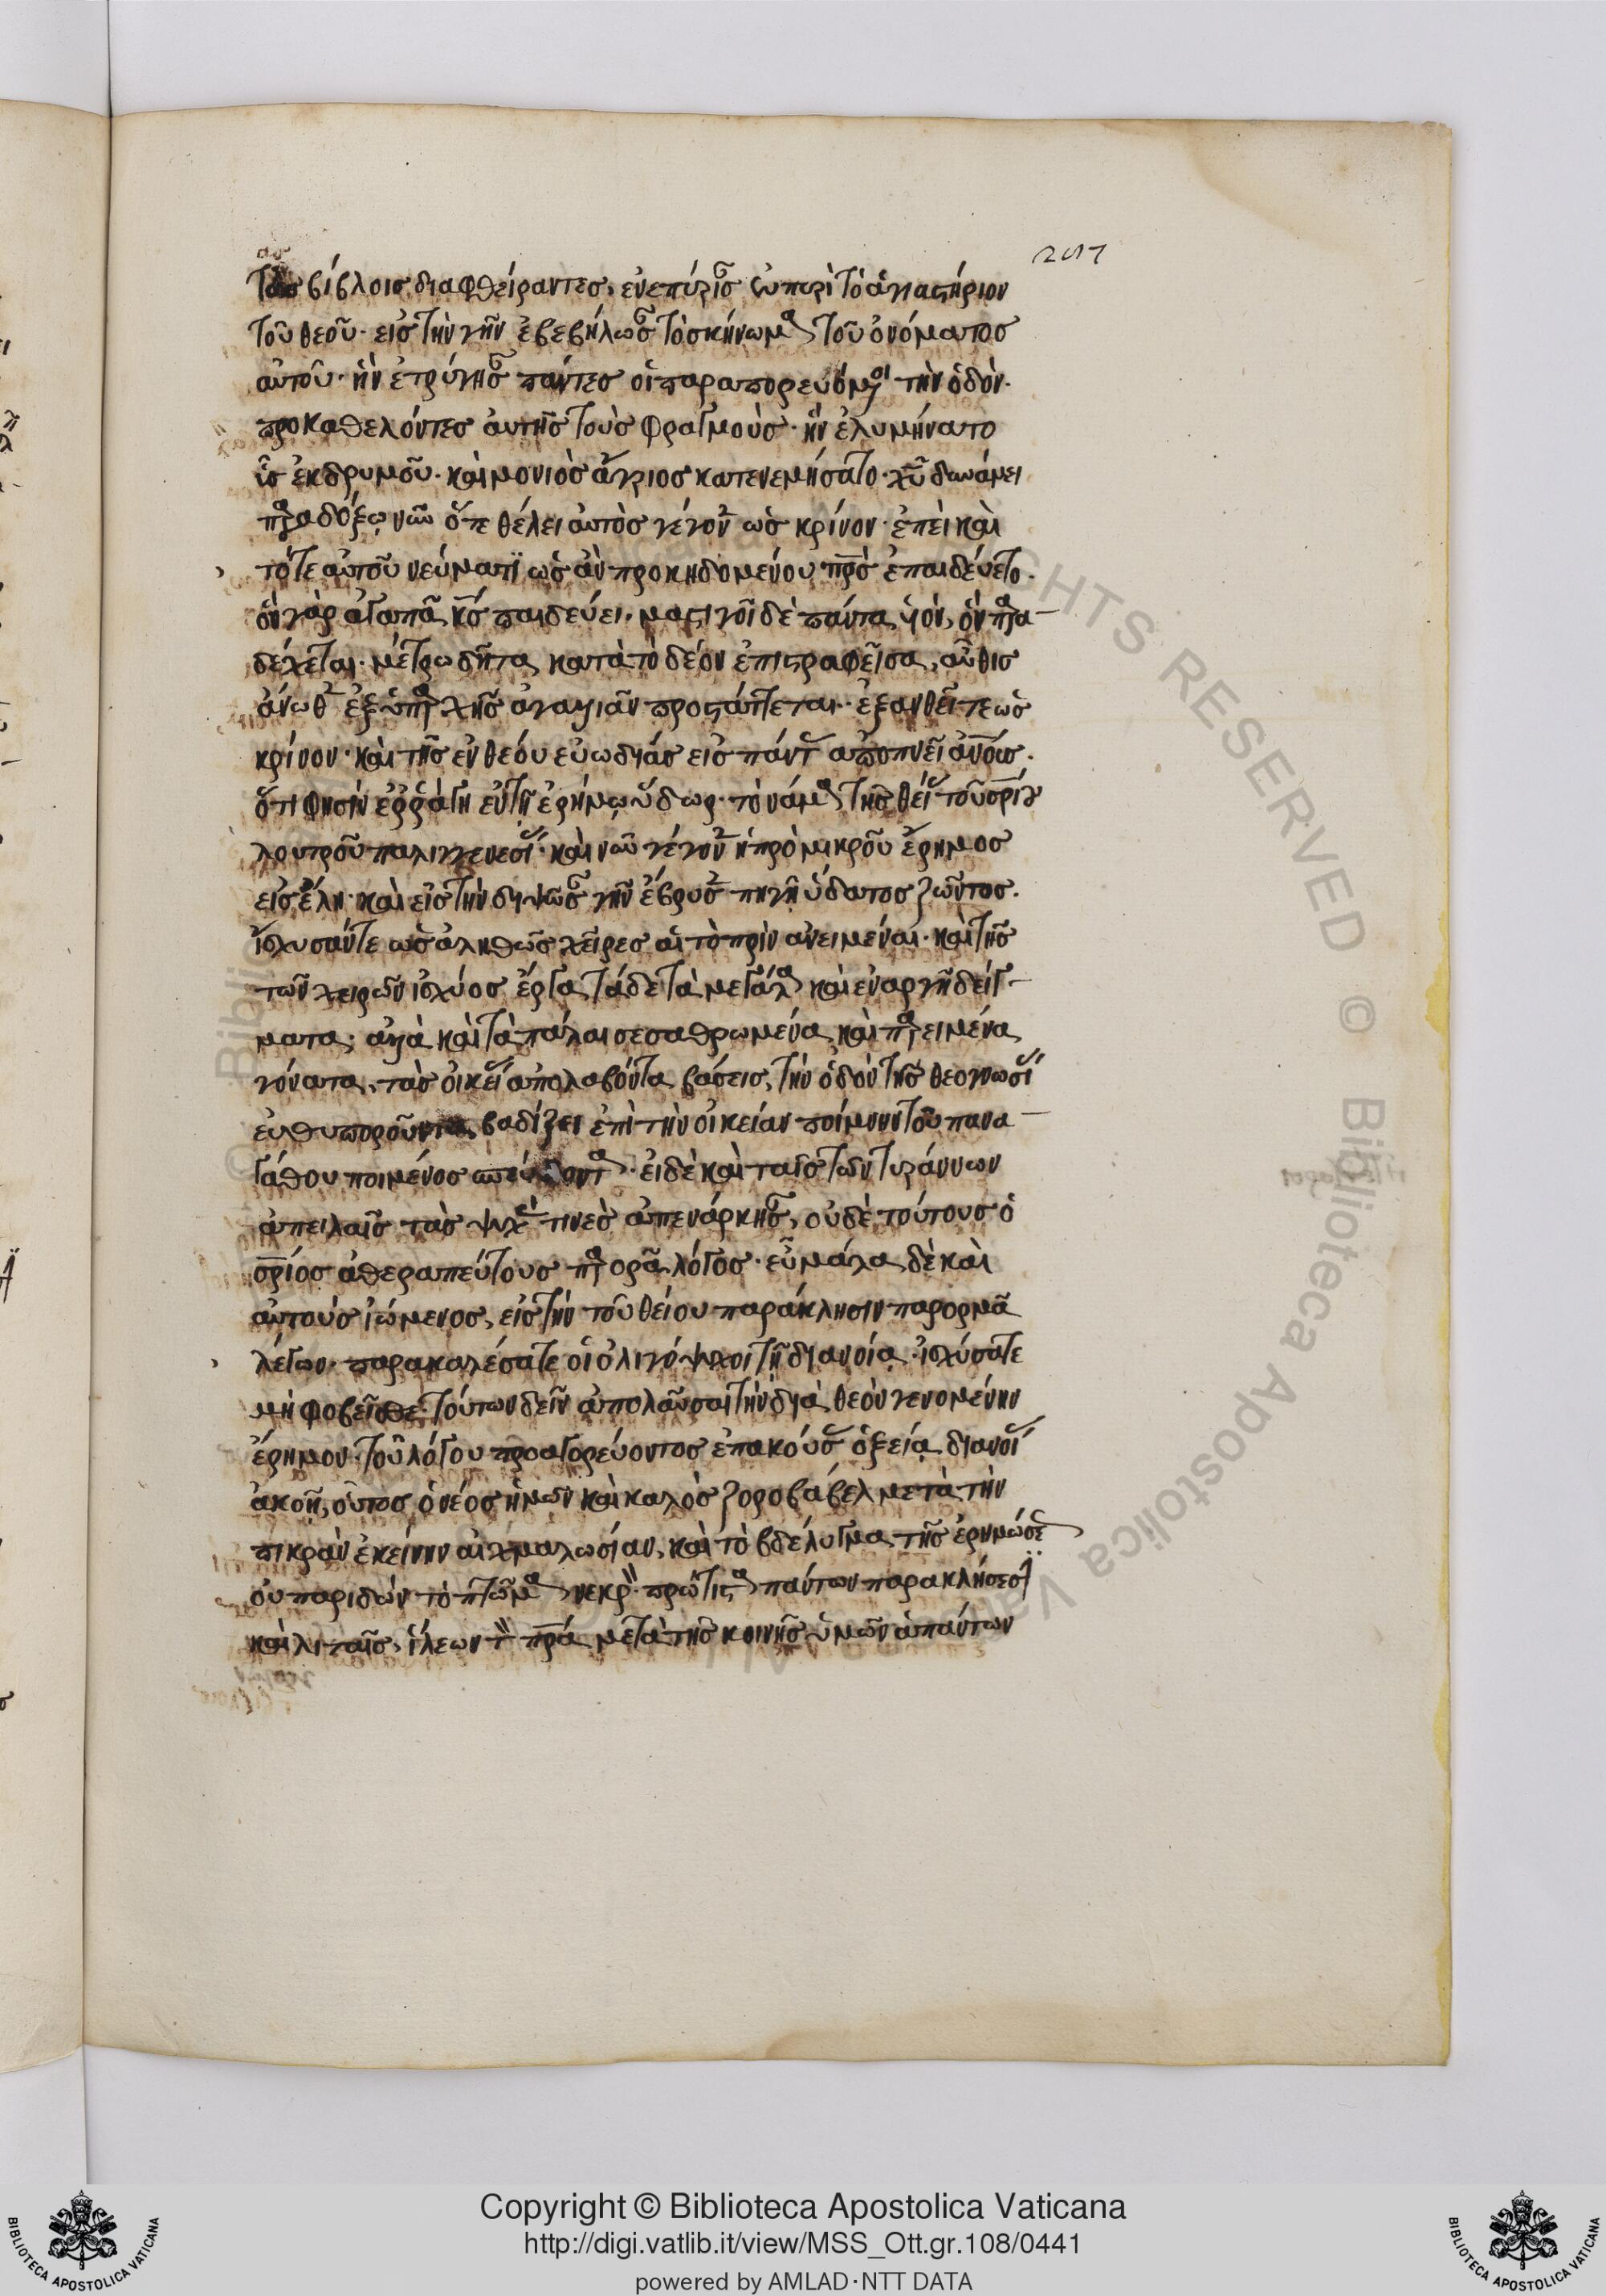 τὰς βίβλοις διαφθείραντες, ἐνεπύρισ ἐν πυρὶ τὸ ἁγιαστήριον
τοῦ θεοῦ· εἰς τὴν γῆν ἐβεβήλωσ τὸ σκήνωμ τοῦ ὀνόματος
αὐτοῦ· ἣν ἐτρύγησ πάντες οἱ παραπορευόμοι τὴν ὁδόν·
προκαθελόντες αὐτῆς τοὺς φραγμούς· ἣν ἐλυμήνατο
ὗς ἐκ δρυμοῦ· καὶ μονιὸς ἄγριος κατενεμήσατο· χυ δυνάμει
παραδόξω νῦν ὅτε θέλει αὐτὸς γέγον ὡς κρίνον· ἐπεὶ καὶ
τότε αὐτοῦ νεύματι ὡς ἂν προκηδομένου πρς ἐπαιδεύετο·
ὃν γὰρ ἀγαπᾶ κς παιδεύει· μαστιγοῖ δὲ πάντα υἱόν, ὃν παρα-
δέχεται· μέτρω δῆτα κατὰ τὸ δέον ἐπιστραφεῖσα, αὖθις
ἄνωθ ἐξ ὑπαρχῆς ἀγαλλιᾶν προστάττεται· ἐξανθεῖ τε ὡς
κρίνον· καὶ τῆς ἐνθέου εὐωδίας εἰς πάντ ἀποπνεῖ ἀνοις·
ὅτι φησὶν ἐρράγη ἐν τῆ ἐρήμω ὕδωρ· τὸ νάμ τῆς θεί τοῦ σρίου
λουτροῦ παλιγγενεσί· καὶ νῦν γέγον ἡ πρὸ μικροῦ ἔρημος
εἰς ἕλη· καὶ εἰς τὴν διψῶσ γῆν ἔβρυσ πηγὴ ὕδατος ζῶντος·
ἴσχυσάν τε ὡς ἀληθῶς χεῖρες αἱ τὸ πρὶν ἀνειμέναι· καὶ τῆς
τῶν χειρῶν ἰσχύος ἔργα τάδε τὰ μεγάλ καὶ ἐναργῆ δείγ-
ματα· ἀλλὰ καὶ τὰ πάλαι σεσαθρωμένα καὶ παρειμένα
γόνατα, τὰς οἰκεί ἀπολαβόντα βάσεις, τὴν ὁδὸν τῆς θεογνωσί
εὐθυποροῦντα, βαδίζει ἐπὶ τὴν οἰκείαν ποίμνην τοῦ πανα-
γάθου ποιμένος · εἰ δὲ καὶ ταῖς τῶν τυράννων
ἀπειλαῖς τὰς ψυχὰς τινὲς ἀπενάρκησ, οὐδὲ τούτους ὁ
σριος ἀθεραπεύτους παρορᾶ λόγος· εὖ μάλα δὲ καὶ
αὐτοὺς ἰώμενος, εἰς τὴν τοῦ θείου παράκλησιν παρορμᾶ
λέγων· παρακαλέσατε οἱ ὀλιγόψυχοι τῆ διανοία· ἰσχύσατε
μὴ φοβεῖσθε· τούτων δεῖν ἀπολαῦσαι τὴν διὰ θεὸν γενομένην
ἔρημον· τοῦ λόγου προαγορεύοντος ἐπακούσ ὀξεία διανοί
ἀκοῆ, οὗτος ὁ νέος ἡμῶν καὶ καλὸς ζοροβάβελ μετὰ τὴν
πικρὰν ἐκείνην αἰχμαλωσίαν, καὶ τὸ βδέλυγμα τῆς ἐρημώσε
οὐ παριδὼν τὸ πτῶμ νεκρ· πρώτιστ πάντων παρακλήσεσι
καὶ λιταῖς, ἵλεων τ πρα μετὰ τῆς κοινῆς ὑμῶν ἁπάντων
Copyright © Biblioteca Apostolica Vaticana
http://digi.vatlib.it/view/MSS_Ott.gr.108/0441
powered by AMLAD·NTT DATA